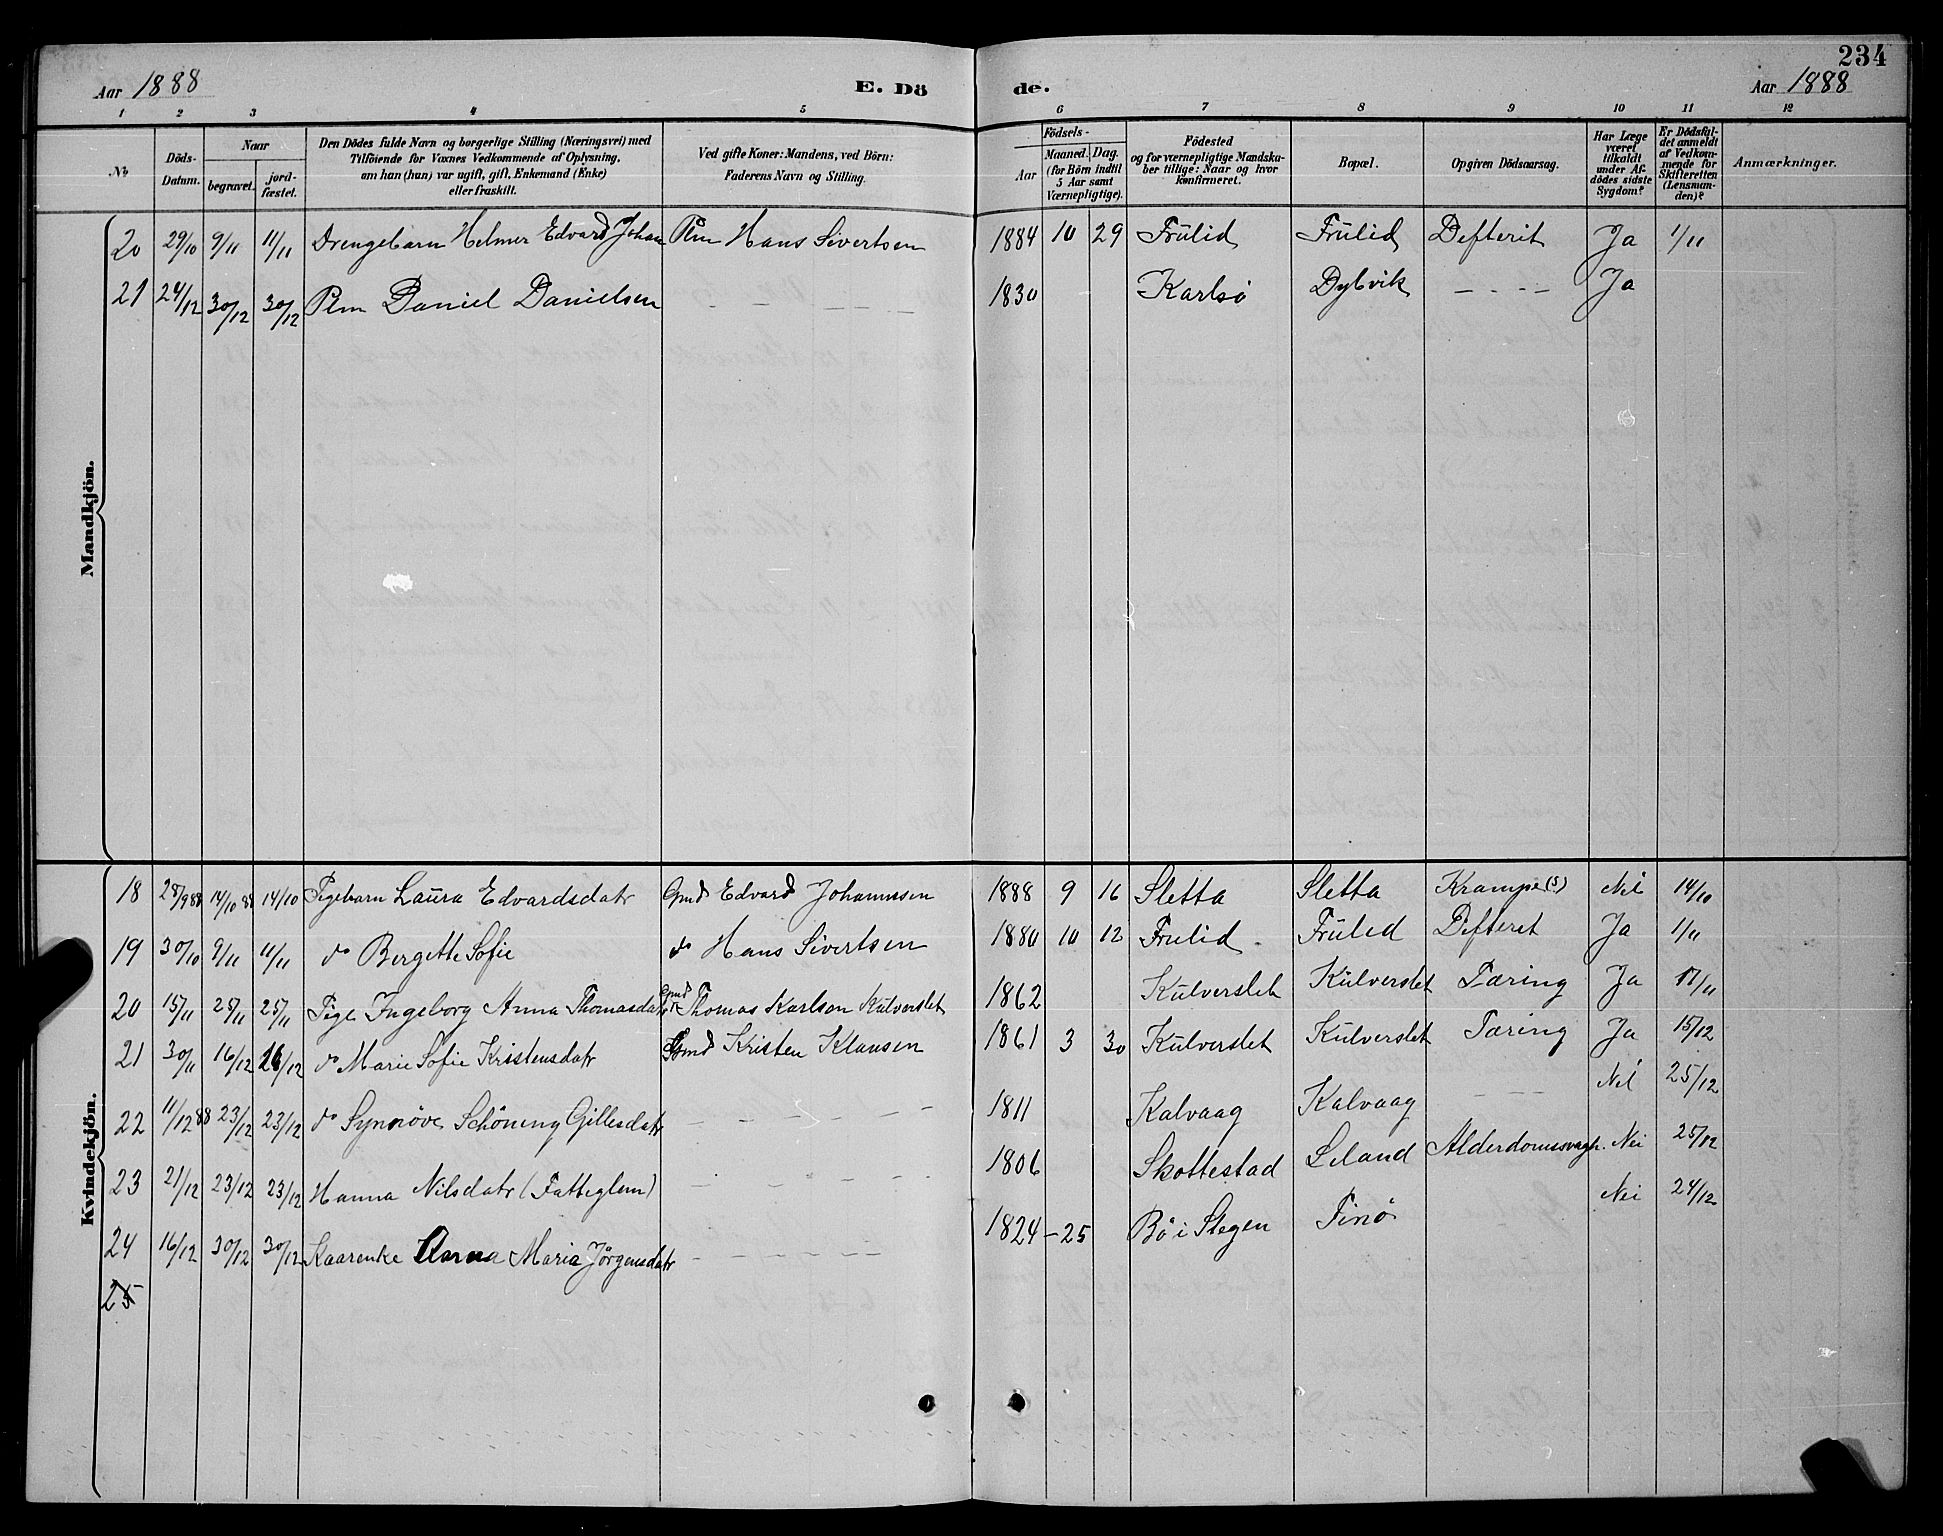 234
Aar 1888 E. Dö de. Aar 1888
1 2 3 4 5 6 7 8 9 10 11 12
№ Döds-Datum. Naar begravet. jord-fæstet. Den Dödes fulde Navn og borgerlige Stilling (Næringsvei) med Tilföiende for Voxnes Vedkommende af Oplysning, om han (hun) var ugift, gift, Enkemand (Enke) eller fraskilt. Ved gifte Koner: Mandens, ved Börn: Faderens Navn og Stilling. Födsels- Aar Maaned. Dag. (for Börn indtil 5 Aar samt Værnepligtige). Födested og for værnepligtige Mandskaber tillige: Naar og hvor konfirmeret. Bopæl. Opgiven Dödsaarsag. Har Læge været tilkaldt under Afdödes sidste Sygdom? Er Dödsfaldet anmeldt af Vedkommende for Skifteretten (Lensmanden)? Anmærkninger.
Mandkjön.
20 29/10 9/11 11/11 Drengebarn Helmer Edvard Johan Plm Hans Sivertsen 1884 10 29 Frulid Frulid Defterit Ja 1/11
21 24/12 30/12 30/12 Plm Daniel Danielsen - - - 1830 Karlsö Dybvik - - - - Ja
Kvindekjön.
18 28/9 88 14/10 88 14/10 Pigebarn Laura Edvardsdatr Gmd Edvard Johannssen 1888 9 16 Sletta Sletta Krampe (s) Nei 14/10
19 30/10 9/11 11/11 do Bergette Sofie do Hans Sivertsen 1880 10 12 Frulid Frulid Defterit Ja 1/11
20 15/11 25/11 25/11 Pige Ingeborg Anna Thomasdatr Gmd Thomas Karlsen Kulverslet 1862 Kulverslet Kulverslet Tæring Ja 17/11
21 30/11 16/12 16/12 do Marie Sofie Kristensdatr Gmd Kristen Klausen 1861 3 30 Kulverslet Kulverslet Tæring Ja 15/12
22 11/12 88 23/12 23/12 do Synnöve Schöning Gillesdatr - - - - - 1811 Kalvaag Kalvaag - - Nei 25/12
23 21/12 23/12 23/12 Hanna Nilsdatr (Fatteglem) - - - - - 1806 Skottestad Leland Alderdomssvagh. Nei 25/12
24 16/12 30/12 30/12 Kaarenke Anna Maria Jörgensdatr - - - - - 1824-25 Bö i Stegen Finö Nei 24/12
25